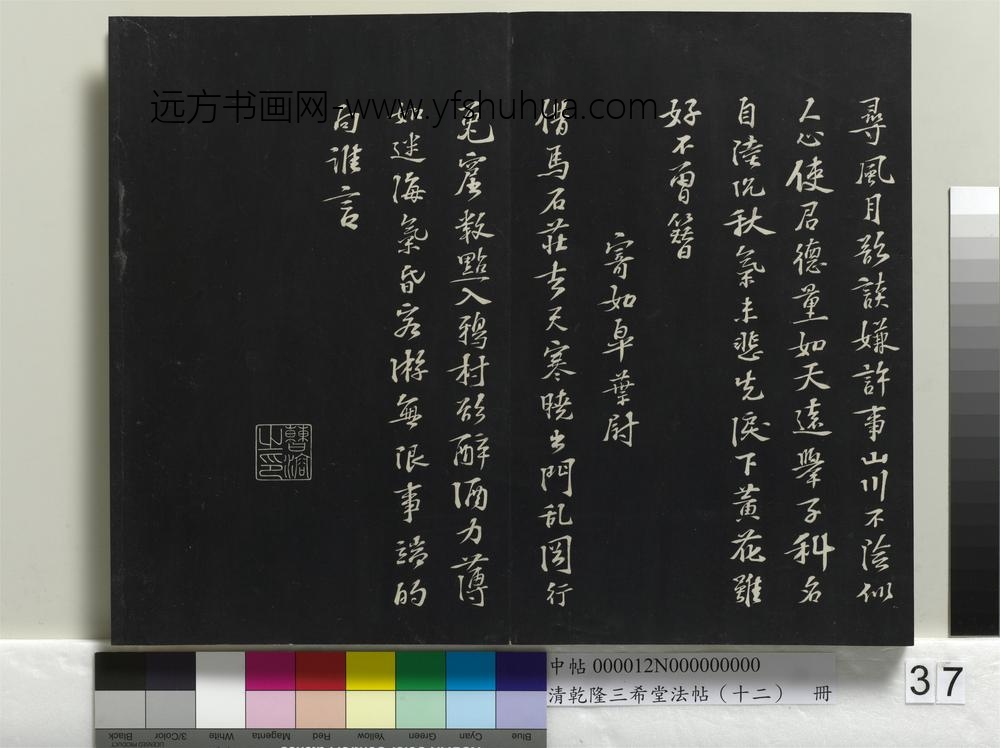 尋風月欲談嫌許事山川不險似
人心使君德量如天遠舉子科名
自陸沉秋氣未悲先淚下黃花雖
好不曾簪
寄如皋葉尉
借馬石莊去天寒曉出門亂岡行
兔窟數點入鴉村欲醉酒力薄
如迷海氣昏客游無限事端的
向誰言
远方书画网-www.yfshuhua.com
中帖 000012N000000000
清乾隆三希堂法帖（十二） 冊
37
Blue
Cyan
Green
Yellow
Red
Magenta
White
3/Color
Black
LICENSED PRODUCT